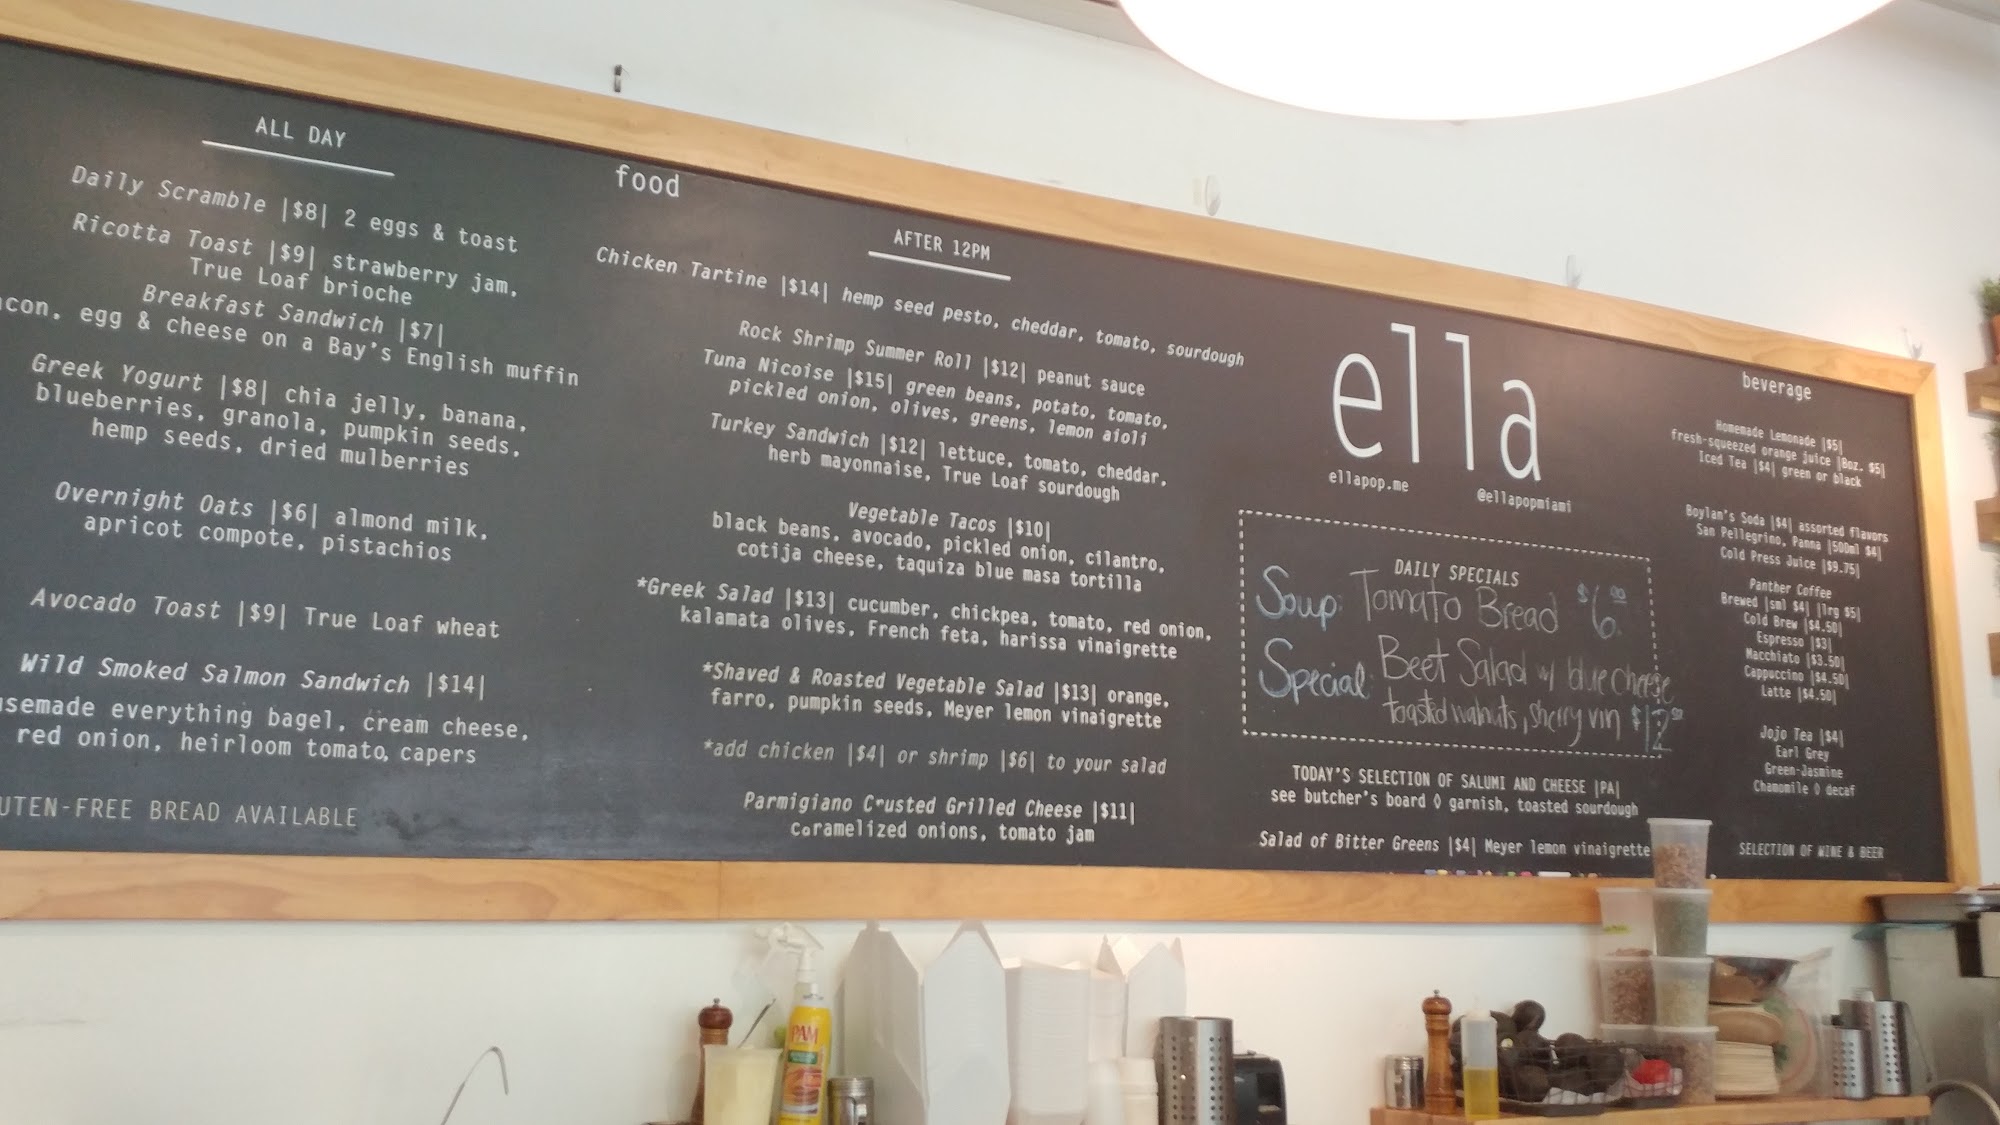 ALL DAY
Daily Scramble |$8| 2 eggs & toast
Ricotta Toast |$9| strawberry jam,
True Loaf brioche
Breakfast Sandwich |$7|
egg & cheese on a Bay's English muffin
Greek Yogurt |$8| chia jelly, banana,
blueberries, granola, pumpkin seeds,
hemp seeds, dried mulberries
Overnight Oats |$6| almond milk,
apricot compote, pistachios
Avocado Toast |$9| True Loaf wheat
Wild Smoked Salmon Sandwich |$14|
everything bagel, cream cheese,
red onion, heirloom tomato, capers
UTEN-FREE BREAD AVAILABLE
food
AFTER 12PM
Chicken Tartine |$14| hemp seed pesto, cheddar, tomato, sourdough
Rock Shrimp Summer Roll |$12| peanut sauce
Tuna Nicoise |$15| green beans, potato, tomato,
pickled onion, olives, greens, lemon aioli
Turkey Sandwich |$12| lettuce, tomato, cheddar,
herb mayonnaise, True Loaf sourdough
Vegetable Tacos |$10|
black beans, avocado, pickled onion, cilantro,
cotija cheese, taquiza blue masa tortilla
*Greek Salad |$13| cucumber, chickpea, tomato, red onion,
kalamata olives, French feta, harissa vinaigrette
*Shaved & Roasted Vegetable Salad |$13| orange,
farro, pumpkin seeds, Meyer lemon vinaigrette
*add chicken |$4| or shrimp |$6| to your salad
Parmigiano Crusted Grilled Cheese |$11|
caramelized onions, tomato jam
ella
ellapop.me @ellapopmiami
DAILY SPECIALS
Soup: Tomato Bread $6.00
Special: Beet Salad w/ blue cheese
toasted walnuts, sherry vin $12.00
TODAY'S SELECTION OF SALUMI AND CHEESE |PA|
see butcher's board ◊ garnish, toasted sourdough
Salad of Bitter Greens |$4| Meyer lemon vinaigrette
beverage
Homemade Lemonade |$5|
fresh-squeezed orange juice |8oz. $5|
Iced Tea |$4| green or black
Boylan's Soda |$4| assorted flavors
San Pellegrino, Panna |500ml $4|
Cold Press Juice |$9.75|
Panther Coffee
Brewed |sml $4| |lrg $5|
Cold Brew |$4.50|
Espresso |$3|
Macchiato |$3.50|
Cappuccino |$4.50|
Latte |$4.50|
Jojo Tea |$4|
Earl Grey
Green-Jasmine
Chamomile ◊ decaf
SELECTION OF WINE & BEER
PAM